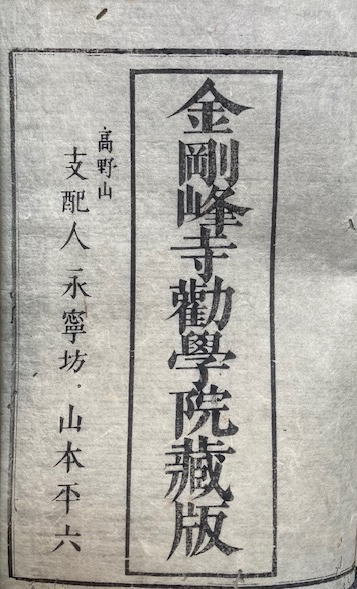 金剛峰寺勸學院藏版
高野山
支配人永寧坊山本平六